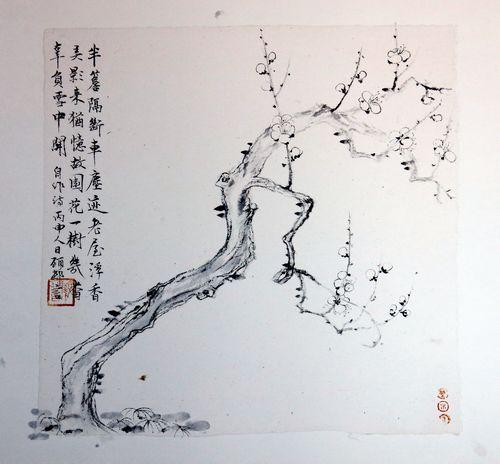 半簾隔斷車塵迹老屋浮香
美影来猶憶故園花一樹幾曾
辜負雪中開 自作詩丙申人日